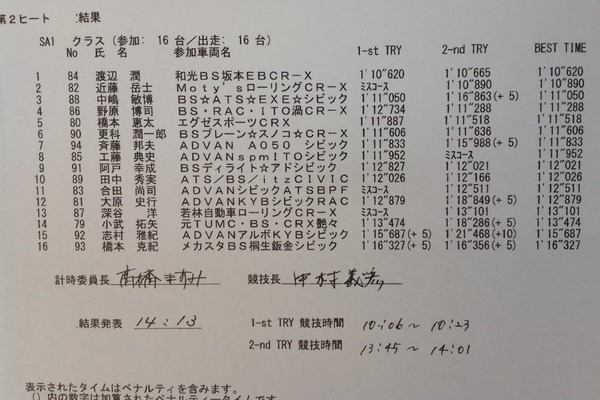 第2ヒート 結果
SA1 クラス (参加: 16 台/出走: 16 台)
No 氏 名 参加車両名 1-st TRY 2-nd TRY BEST TIME
1 84 渡辺 潤 和光BS坂本EBCR-X 1'10"620 1'10"665 1'10"620
2 82 近藤 岳士 Moty'sローリングCR-X ミスコース 1'10"890 1'10"890
3 88 中嶋 敏博 BS☆ATS☆EXE☆シビック 1'11"050 1'16"863(+ 5) 1'11"050
4 86 野原 博司 BS・RAC・ITO渦CR-X 1'12"734 1'11"288 1'11"288
5 80 橋本 恵太 エグゼスポーツCRX 1'11"887 1'11"518 1'11"518
6 90 更科 潤一郎 BSプレーン☆スノコ☆CR-X 1'11"606 1'11"636 1'11"606
7 94 斉藤 邦夫 ADVAN A050 シビック 1'11"833 1'15"988(+ 5) 1'11"833
8 85 工藤 典史 ADVANspmITOシビック 1'11"952 ミスコース 1'11"952
9 91 阿戸 幸成 BSディライト☆アドシビック 1'12"827 1'12"021 1'12"021
10 89 田中 秀実 ATS/BS/itzCIVIC 1'12"026 1'12"166 1'12"026
11 83 合田 尚司 ADVANシビックATSBPF ミスコース 1'12"511 1'12"511
12 81 大原 史行 ADVANKYBシビックRAC 1'12"879 1'18"849(+ 5) 1'12"879
13 87 深谷 洋 若林自動車ローリングCR-X ミスコース 1'13"101 1'13"101
14 79 小武 拓矢 元TUMC・BS・CRX艶々 1'13"474 1'18"286(+ 5) 1'13"474
15 92 志村 雅紀 ADVANアルボKYBシビック 1'15"687(+ 5) 1'21"468(+10) 1'15"687
16 93 橋本 克紀 メカスタBS桐生鈑金シビック 1'16"327(+ 5) 1'16"356(+ 5) 1'16"327
計時委員長 高橋 競技長 中村
結果発表 14:13 1-st TRY 競技時間 10:06 ~ 10:23
2-nd TRY 競技時間 13:45 ~ 14:01
表示されたタイムはペナルティを含みます。
()内の数字は加算されたペナルティータイムです